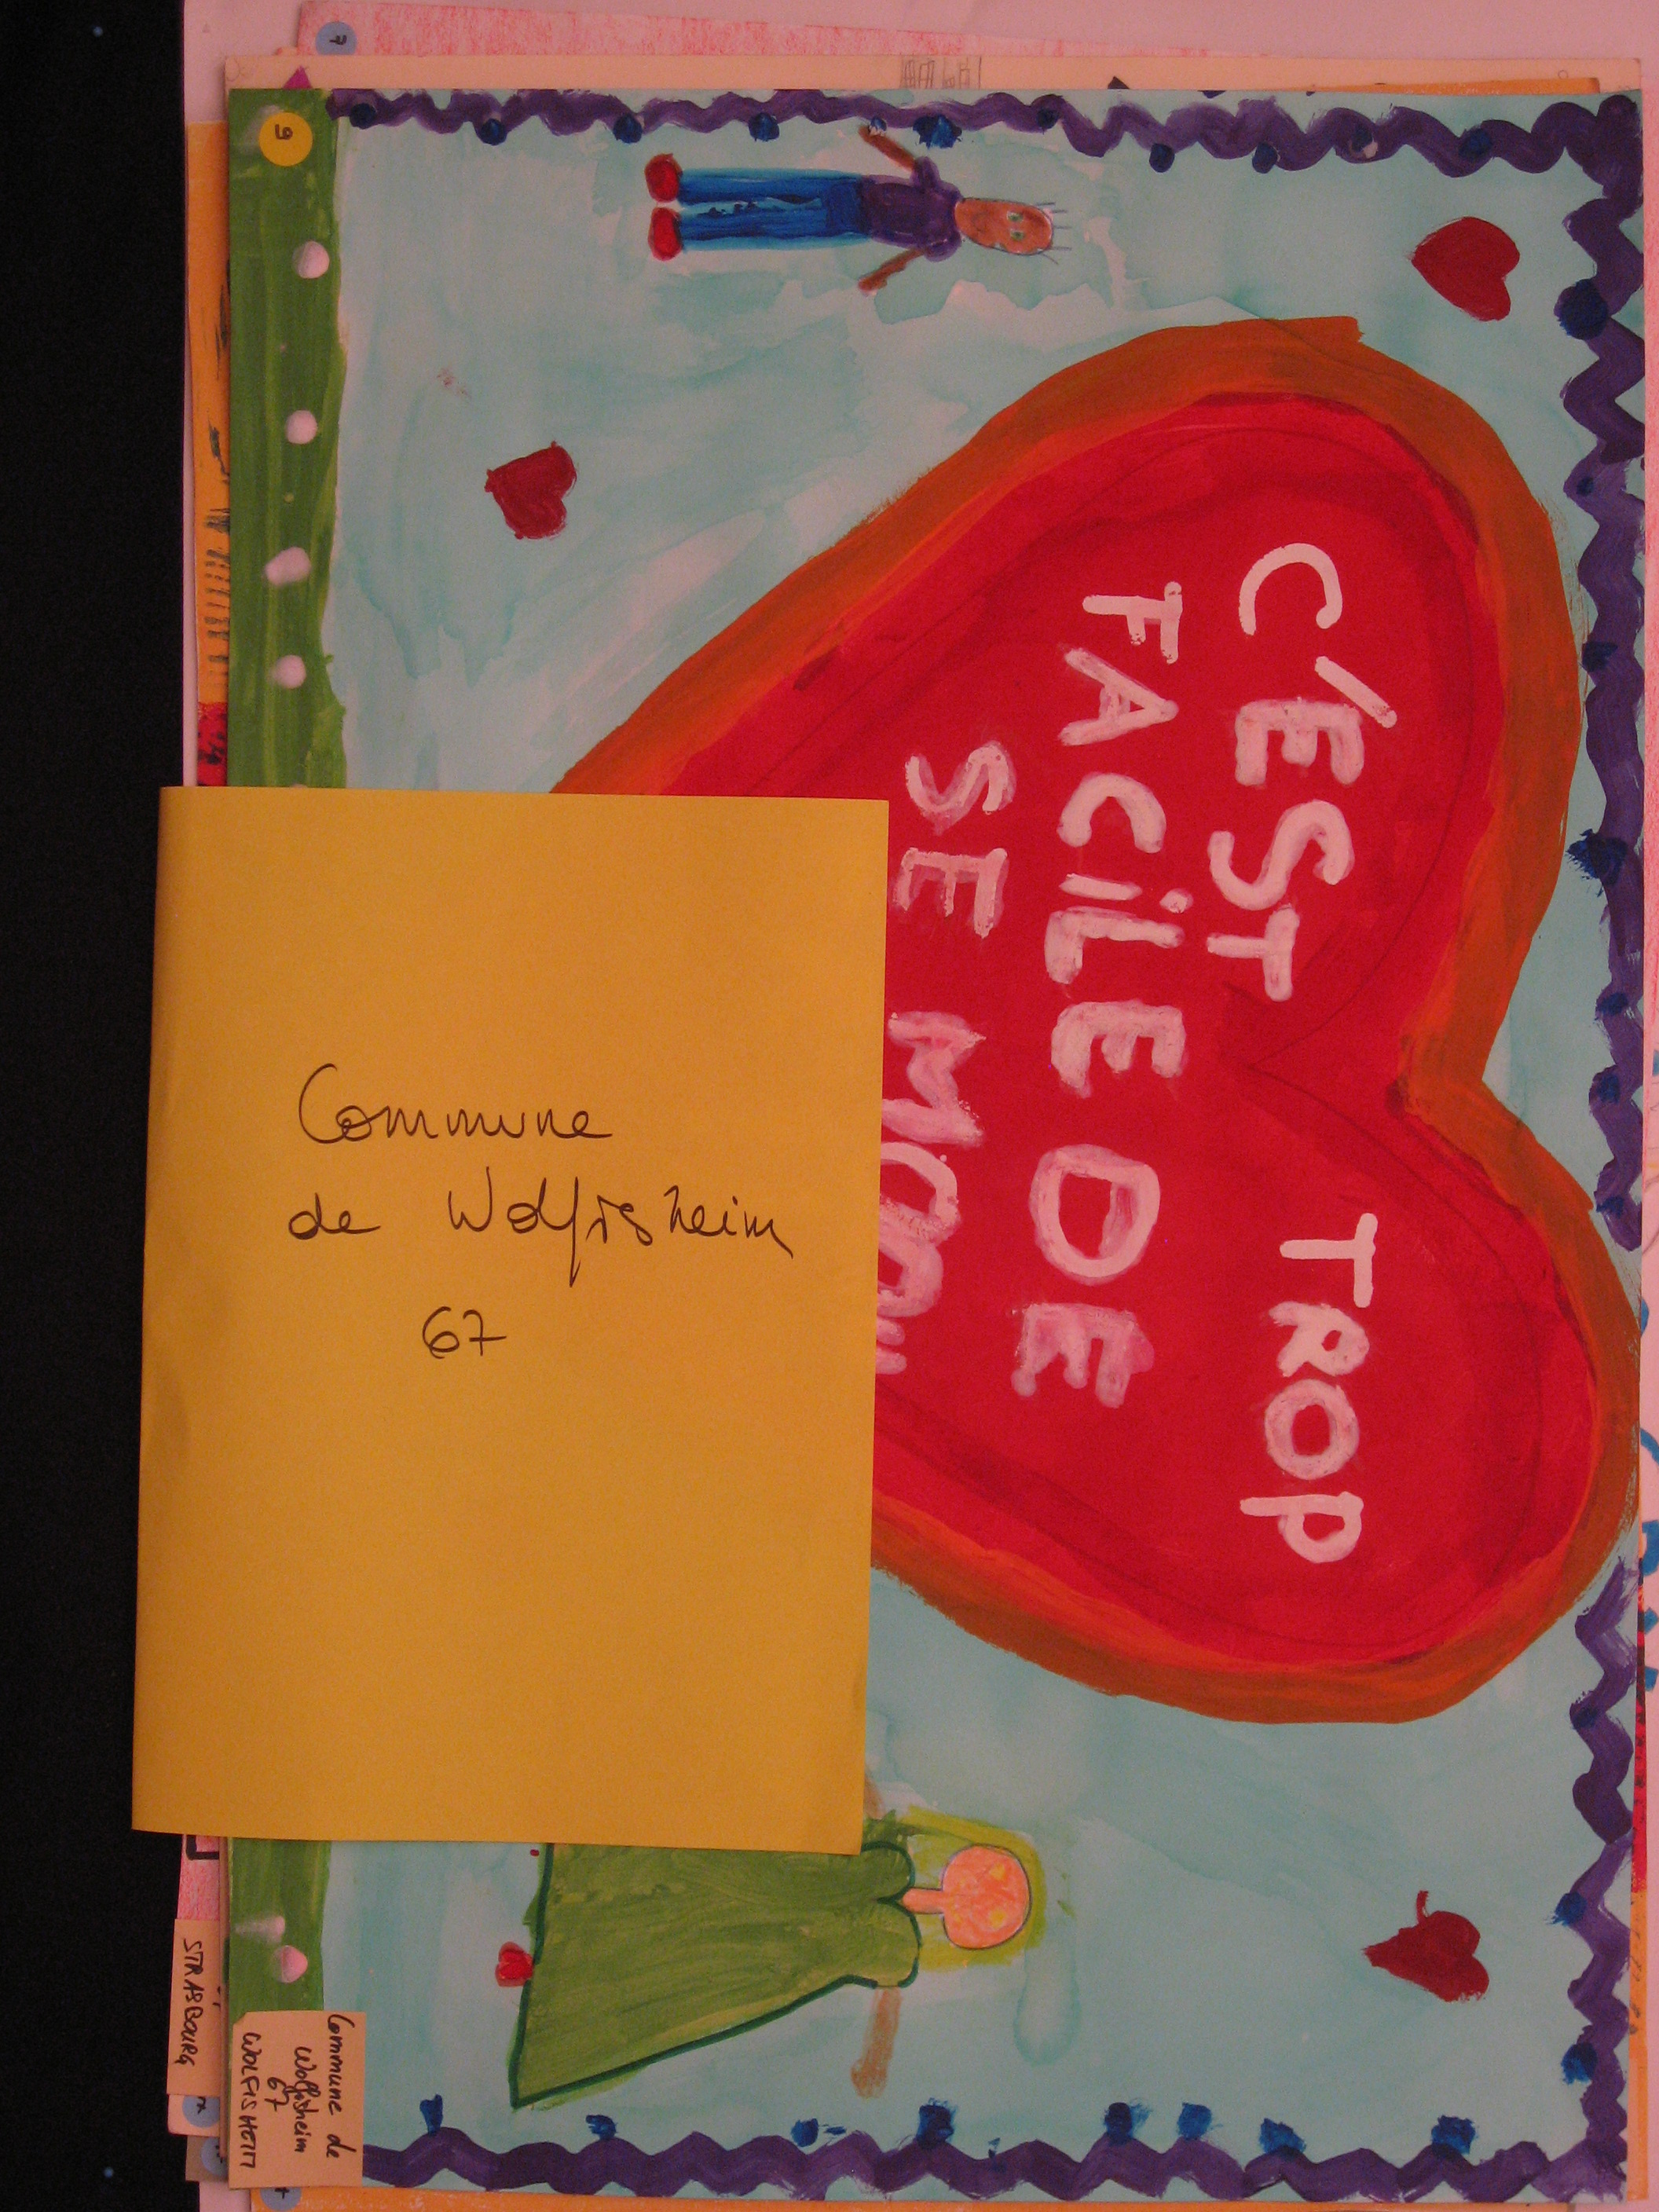 C'EST TROP
FACILE DE
SE MOQU
Commune
de Wolfisheim
67
Commune de
Wolfisheim
67
WOLFISHEIM
STRASBOURG
7